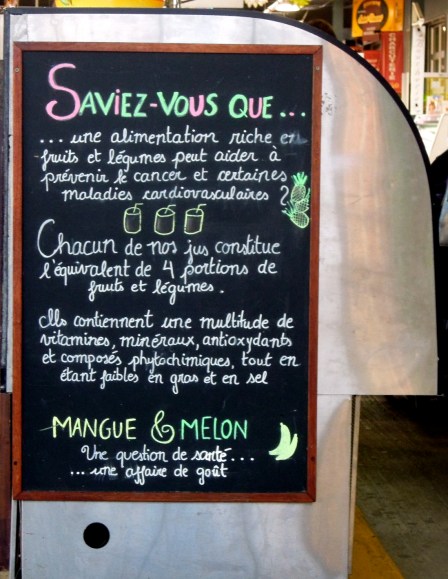 SAViEZ-VOUS QUE...
... une alimentation riche en
fruits et légumes peut aider à
prévenir le cancer et certaines
maladies cardiovasculaires ?
Chacun de nos jus constitue
l'équivalent de 4 portions de
fruits et légumes.
Ils contiennent une multitude de
vitamines, minéraux, antioxydants
et composés phytochimiques, tout en
étant faibles en gras et en sel
MANGUE & MELON
Une question de santé...
... une affaire de goût